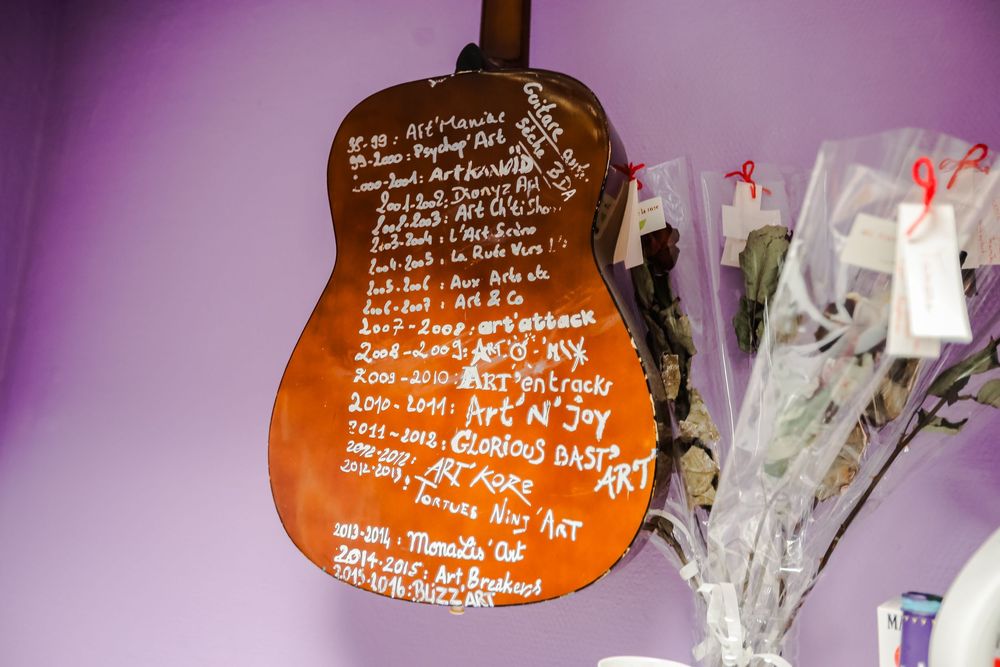 Guitare avec
sèche BDA
98-99 : Art'Maniac
99-2000 : Psychop'Art
2000-2001 :
2001-2002 : Dionyz Art
2002-2003 : Art Ch'ti Sho
2003-2004 : L'Art Scène
2004-2005 : La Ruée Vers !
2005-2006 : Aux Arts etc
2006-2007 : Art & Co
2007-2008 : art'attack
2008-2009 : ART'O'MIX
2009-2010 ART'entracks
2010-2011 : Art'N'joy
2011-2012 : GLORIOUS BAST'ART
2012-2012 : ART KORE
2012-2013 : TORTUES NINJ'ART
2013-2014 : MonaLis'Art
2014-2015 : Art,Breakers
2015-2016 : BLIZZ'ART